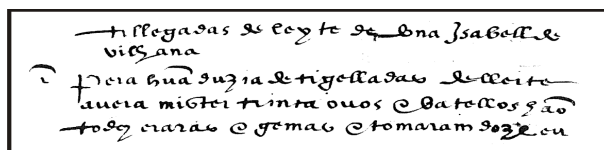 tigelladas de leyte de dona Isabell de
vilhana
pera hũa duzia de tigelladas de lleite
avera mister trinta ovos e batellos hão
todos craras e gemas e tomaram doze